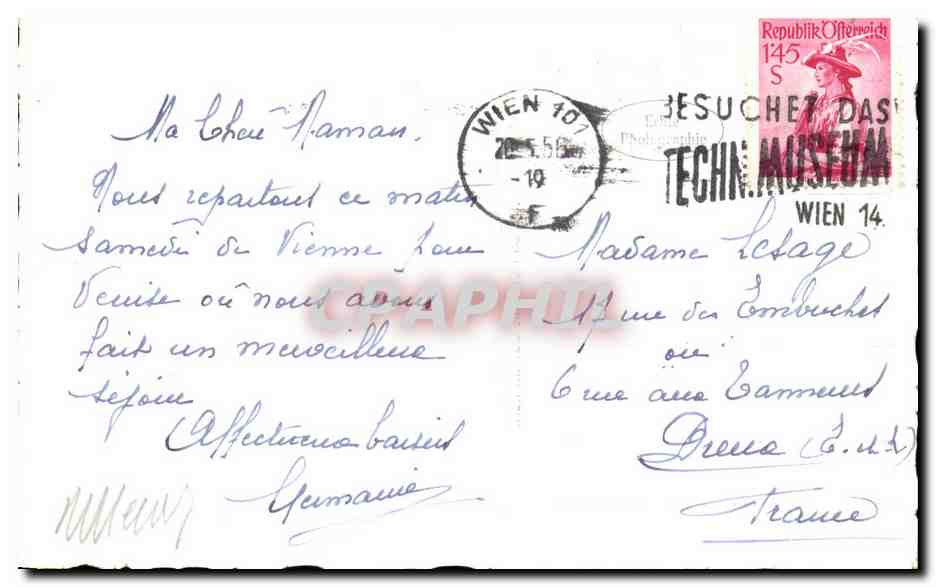 Ma Chère Maman,
Nous repartons ce matin
samedi de Vienne pour
Venise où nous avons
fait un merveilleux
séjour
Affectueux baisers
Germaine
WIEN 101
5.56
-19
F
Edité
Photographie
BESUCHET DAS
TECHN. MUSEUM
WIEN 14.
Republik Österreich
1'45
S
Madame Lesage
rue des Embuches
ou
6 rue aux Tanneurs
Dreux (E. et L)
France
CPAPHIL